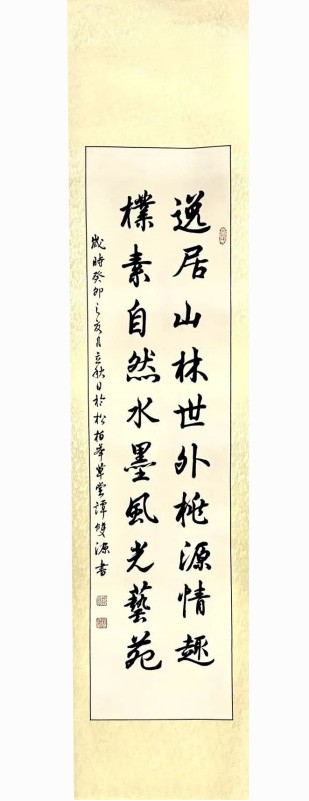 逸居山林世外桃源情趣
樸素自然水墨風光藝苑
歲時癸卯之亥月立秋日於松柏峯草堂譚雙源書